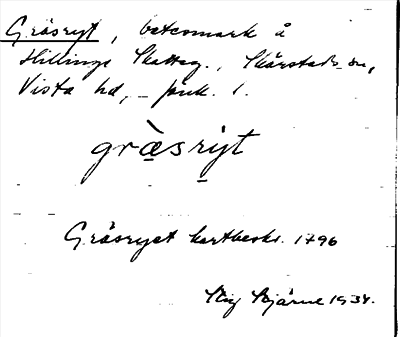 Gräsryt, betesmark å
Hillinge Skatteg., Skärstads sn,
Vista hd, Jönk. l.
grä̀sryt
Gräsryet kartbeskr. 1796
Stig Bjärne 1934.